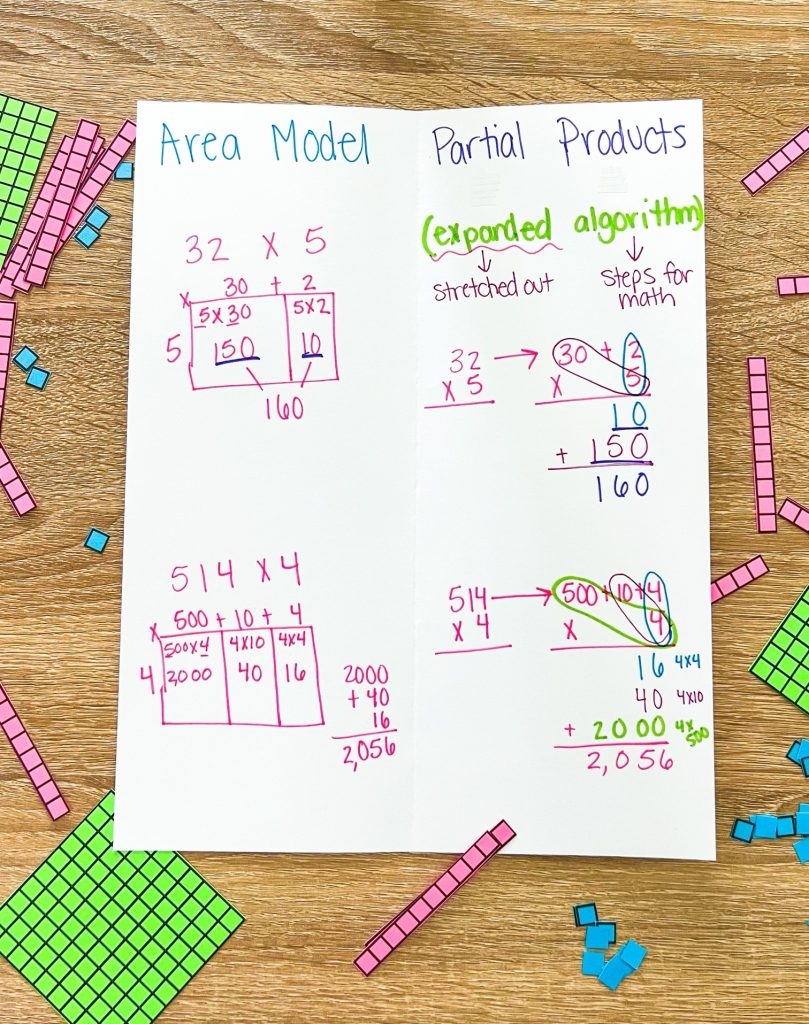 Area Model
32 x 5
x 30 + 2
5x30 5x2
5 150 10
160
514 x 4
x 500 + 10 + 4
500x4 4x10 4x4
4 2000 40 16
2000
+ 40
16
2,056
Partial Products
(expanded algorithm)
stretched out
steps for
math
32 → 30 + 2
x 5 x 5
10
+ 150
160
514 → 500+10+4
x 4 x 4
16 4x4
40 4x10
+ 2000 4x
500
2,056